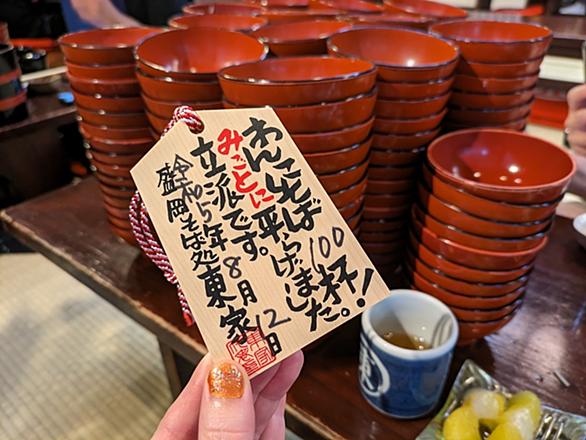 わんこそば100杯!
みごとに平らげました。
立派です。
令和5年8月12日
盛岡そば処 東家
東